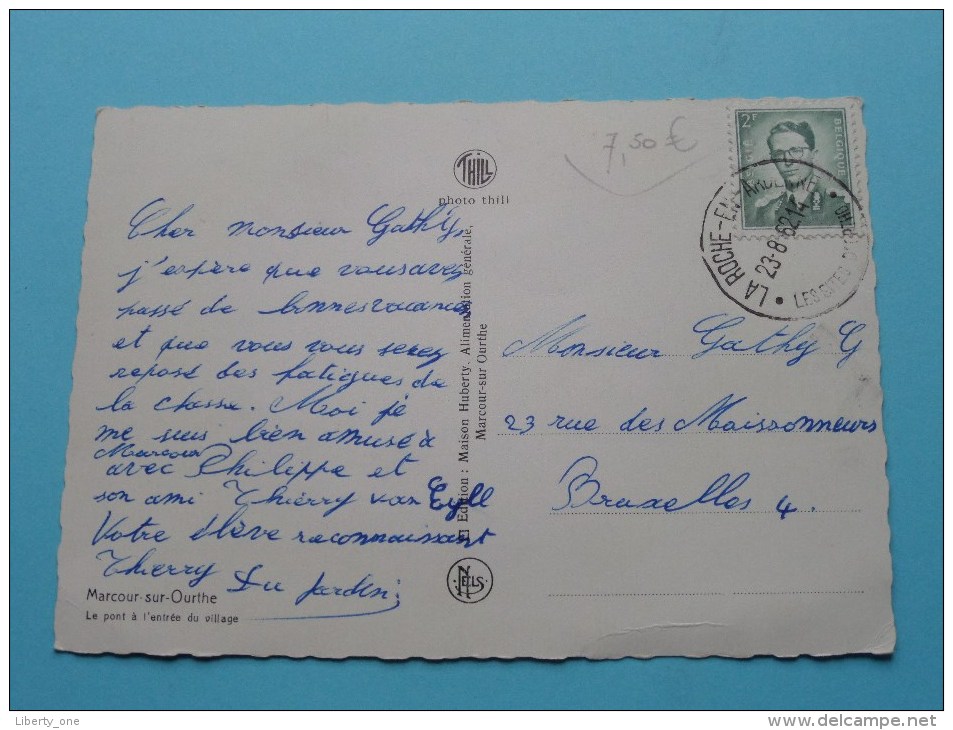 THILL
photo thill
7,50 €
2F
BELGIQUE
LA ROCHE-EN-ARDENNE
23-8-62 14
LES SITES
Cher Monsieur Gathy,
j'espère que vous avez
passé de bonnes vacances
et que vous vous serez
reposé des fatigues de
la classe. Moi je
me suis bien amusé à
Marcour
avec Philippe et
son ami Thierry van Eyll
Votre élève reconnaissant
Thierry Du Jardin
Marcour-sur-Ourthe
Le pont à l'entrée du village
Edition : Maison Huberty. Alimentation générale,
Marcour-sur Ourthe
NELS
Monsieur Gathy G
23 rue des Maissonneurs
Bruxelles 4.
Liberty_one
delcampe.net